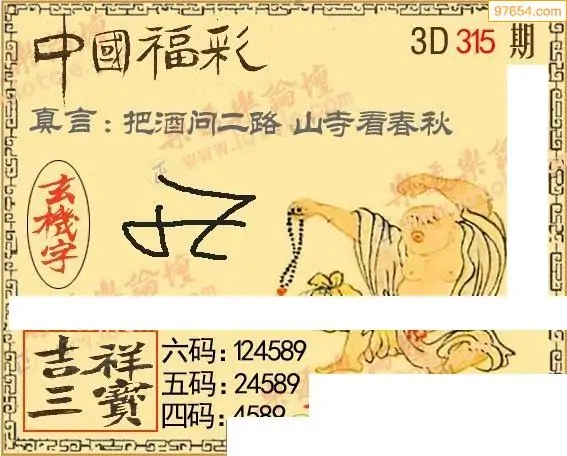 97654.com
中國福彩
3D 315 期
真言：把酒问二路 山寺看春秋
玄機字
吉祥三寶
六码：124589
五码：24589
四码：4589